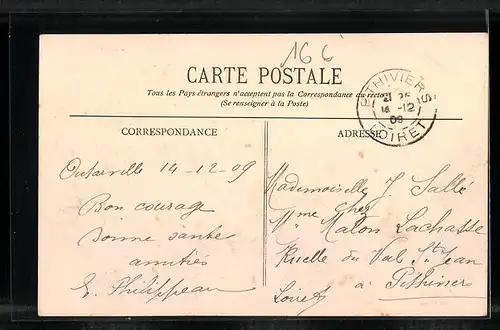 166
CARTE POSTALE
Tous les Pays étrangers n'acceptent pas la Correspondance au recto
(Se renseigner à la Poste)
PITHIVIERS
21 35
14 -12
09
LOIRET
CORRESPONDANCE
Outarville 14-12-09
Bon courage
bonne santé
amitiés
E. Philippeau
ADRESSE
Mademoiselle J Sallé
chez
Mme Malon Lachasse
Ruelle du Val St Jean
à Pithiviers
Loiret